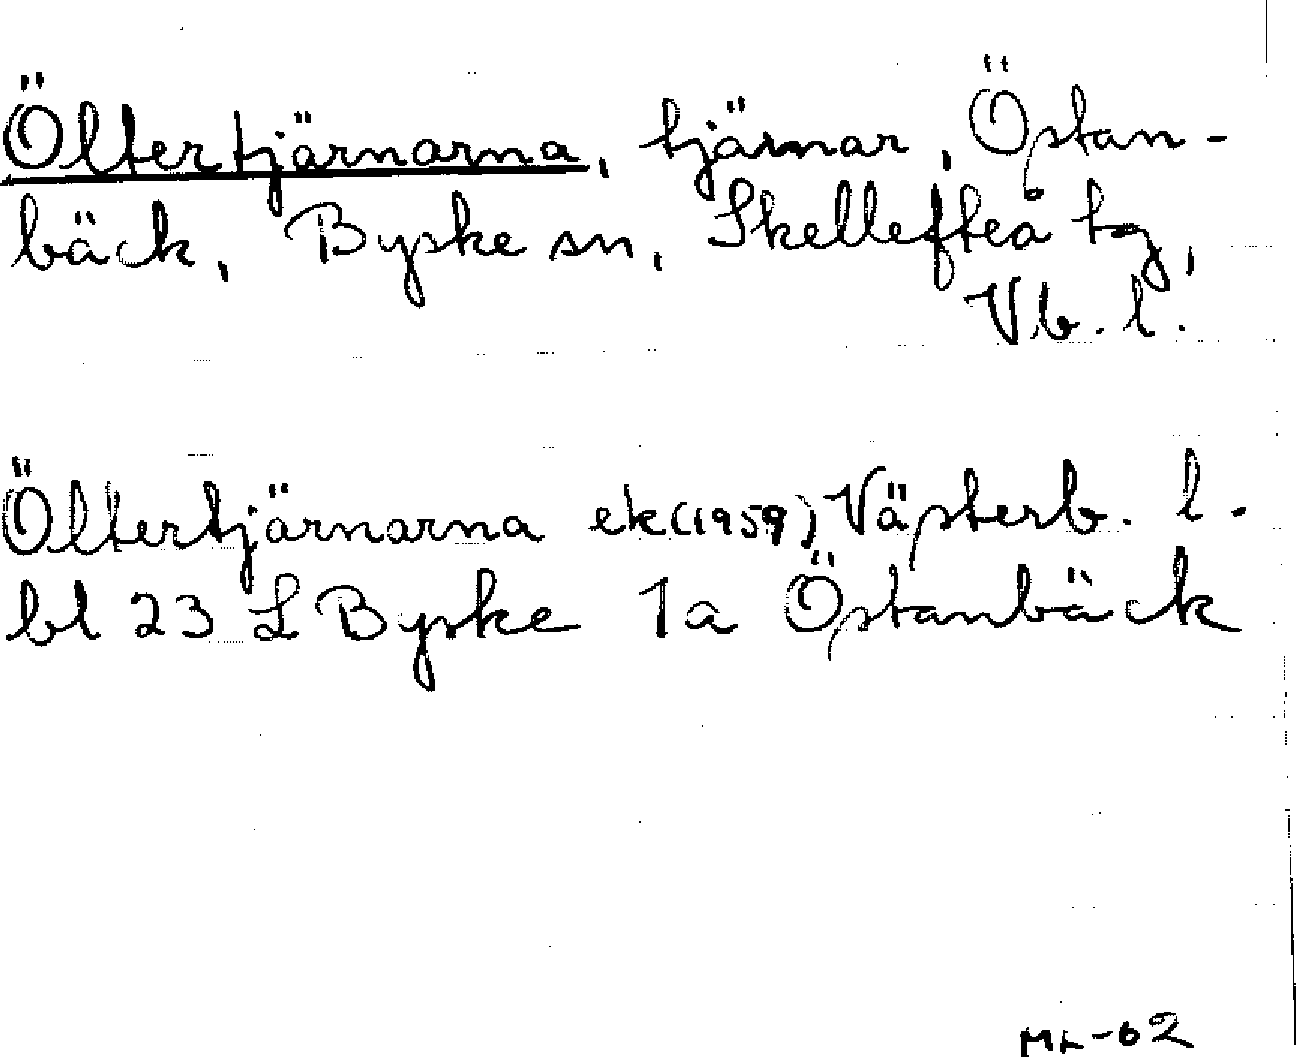 Öltertjärnarna, tjärnar, Östan-
bäck, Byske sn, Skellefteå tg,
Vb. l.
Öltertjärnarna ek(1959) Västerb. l.
bl 23 L Byske 1a Östanbäck
ML-62